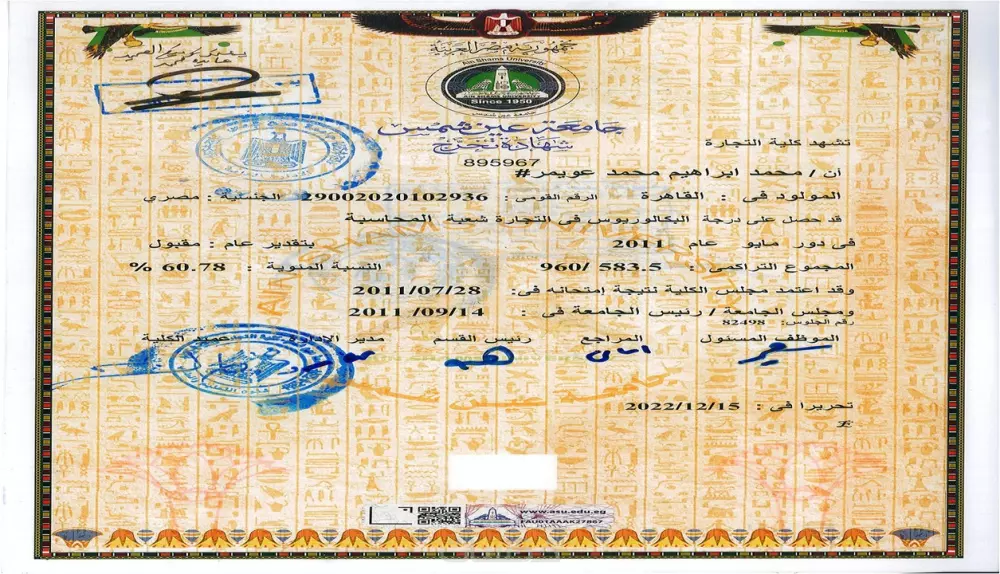 جمهورية مصر العربية
Ain Shams University
Since 1950
جامعة عين شمس
جامعة عين شمس
شهادة تخرج
895967
تشهد كلية التجارة
أن / محمد ابراهيم محمد عويمر#
المولود فى : القاهرة الرقم القومى : 29002020102936 الجنسية : مصرى
قد حصل على درجة البكالوريوس فى التجارة شعبة المحاسبة
فى دور مايو عام 2011 بتقدير عام : مقبول
المجموع التراكمى : 583.5 /960 النسبة المئوية : 60.78 %
وقد اعتمد مجلس الكلية نتيجة إمتحانه فى: 2011/07/28
ومجلس الجامعة / رئيس الجامعة فى : 2011 /09/14
رقم الجلوس: 82498
الموظف المسئول المراجع رئيس القسم مدير الإدارة عميد الكلية
تحريرا فى : 2022/12/15
www.asu.edu.eg
FAU01AAAK27867